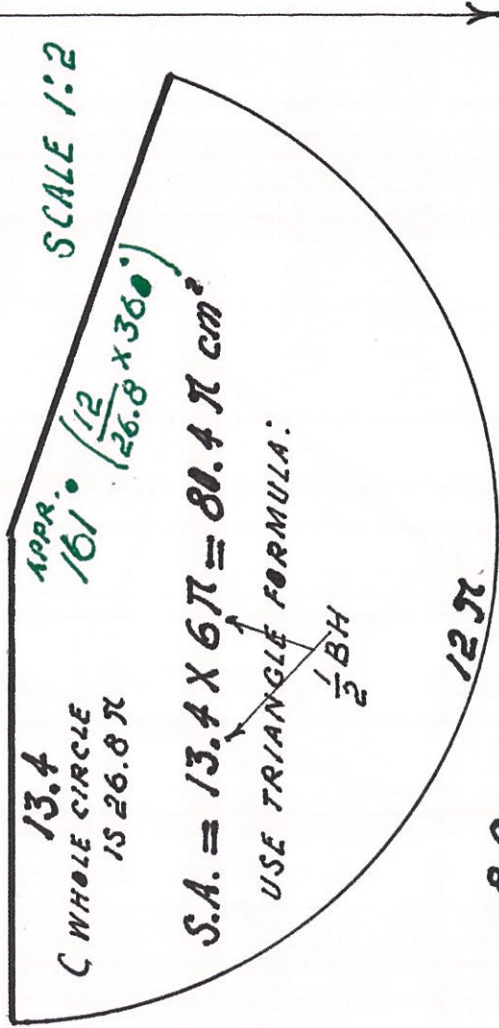 SCALE 1:2
APPR.
161° (12/26.8 × 360°)
13.4
C WHOLE CIRCLE
IS 26.8π
S.A. = 13.4 × 6π = 80.4 π cm²
USE TRIANGLE FORMULA:
1/2 BH
12π